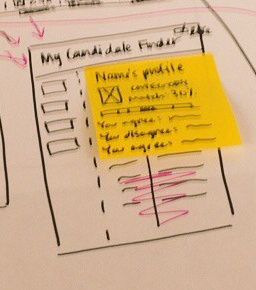 My Candidate Finder
Name's profile
match: 30%
You agree:
You disagree:
You agree: